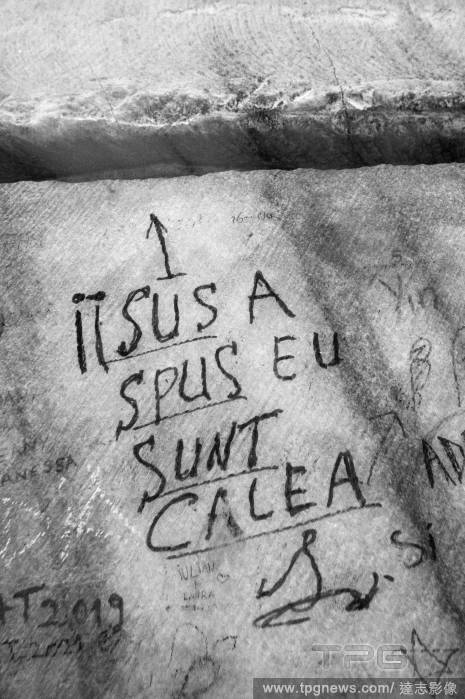 IISUS A
SPUS EU
SUNT
CALEA
Si
ANESSA
IULIAN
LAURA
AT2019
TPG
www.tpgnews.com/達志影像